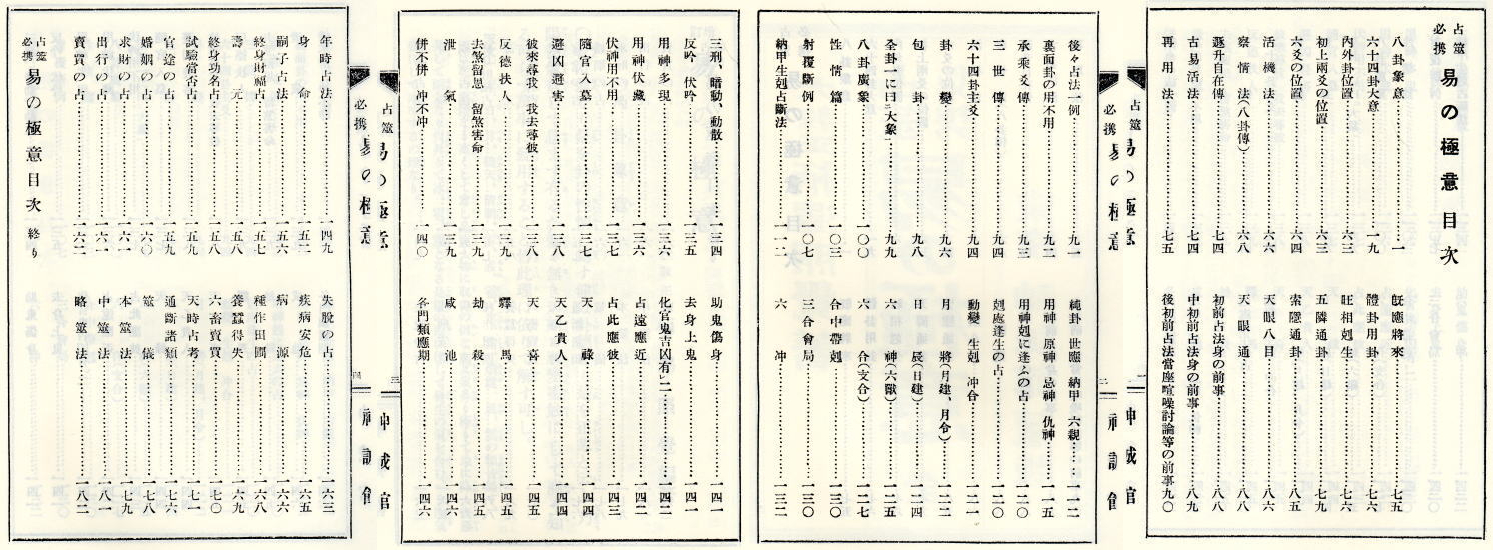 占筮必携 易の極意 目次
八卦象意……一
六十四卦大意……一九
內外卦位置……六三
初上兩爻の位置……六三
六爻の位置……六四
活機法……六六
察情法(八卦傳)……六八
遯井自在傳……七四
古易活法……七四
再用法……七五
旣應將來……七五
體卦用卦……七六
旺相剋生……七六
五隣通卦……七九
索隱通卦……八五
天眼八目……八六
天眼通……八八
初前占法身の前事……八八
中初前占法身の前事……八九
後初前占法當座喧噪討論等の前事……九〇
占筮必携 易の極意
一
神誠館
後々占法一例……九一
裏面卦の用不用……九二
承乘爻傳……九三
三世傳……九四
六十四卦主爻……九四
卦變……九六
包卦……九八
全卦一に曰ニ大象……九九
八卦廣象……一〇〇
性情篇……一〇三
射覆斷例……一〇七
納甲生剋占斷法……一一一
純卦 世應 納甲 六親……一一二
用神 原神 忌神 仇神……一一五
用神剋に逢ふの占……一二〇
剋處逢生の占……一二〇
動變 生剋 冲合……一二一
月將(月建、月令)……一二二
日辰(日建)……一二四
六神(六獸)……一二五
六合(支合)……一二七
合中帶剋……一三〇
三合會局……一三〇
六冲……一三二
三刑、暗動、動散……一三四
反吟 伏吟……一三五
用神多現……一三六
用神伏藏……一三六
伏神用不用……一三七
隨官入墓……一三七
避凶避害……一三八
彼來尋我 我去尋彼……一三八
反德扶人……一三九
去煞留恩 留煞害命……一三九
泄氣……一三九
併不併 冲不冲……一四〇
助鬼傷身……一四一
去身上鬼……一四一
化官鬼吉凶有レ二……一四二
占遠應近……一四二
占此應彼……一四三
天祿……一四四
天乙貴人……一四四
天喜……一四五
驛馬……一四五
劫殺……一四五
咸池……一四六
各門類應期……一四六
占筮必携 易の極意
三
四
神誠館
年時占法……一四九
身命……一五二
嗣子占法……一五六
終身財福占……一五七
壽元……一五八
終身功名占……一五八
試驗當否占……一五九
官途の占……一五九
婚姻の占……一六〇
求財の占……一六一
出行の占……一六一
賣買の占……一六二
失脫の占……一六三
疾病安危……一六五
病源……一六六
種作田圃……一六八
養蠶得失……一六九
六畜賣買……一七〇
天時占考……一七〇
通斷諸類……一七六
筮儀……一七八
本筮法……一七九
中筮法……一八一
略筮法……一八二
占筮必携 易の極意目次 終り